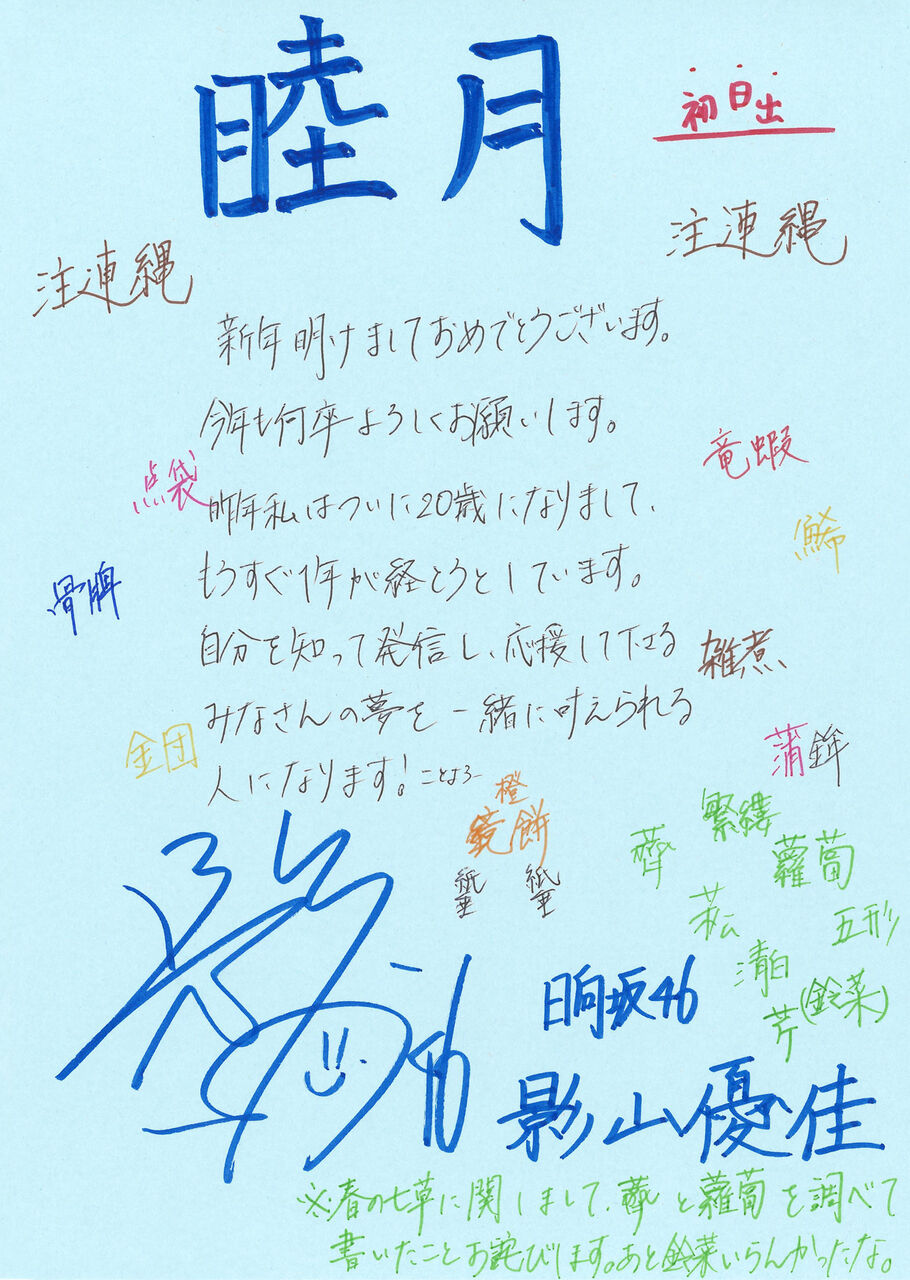 睦月
初日出
注連縄
注連縄
新年明けましておめでとうございます。
今年も何卒よろしくお願いします。
点袋
竜蝦
昨年私はついに20歳になりまして、
鯑
もうすぐ1年が経とうとしています。
骨牌
自分を知って発信し、応援して下さる
雑煮
みなさんの夢を一緒に叶えられる
金団
蒲鉾
人になります!ことよろー
橙
鏡餅
紙垂
紙垂
繁縷
薺
蘿蔔
菘
五形
清白
(鈴菜)
芹
日向坂46
46
影山優佳
※春の七草に関しまして、薺と蘿蔔を調べて
書いたことお詫びします。あと鈴菜いらんかったな。